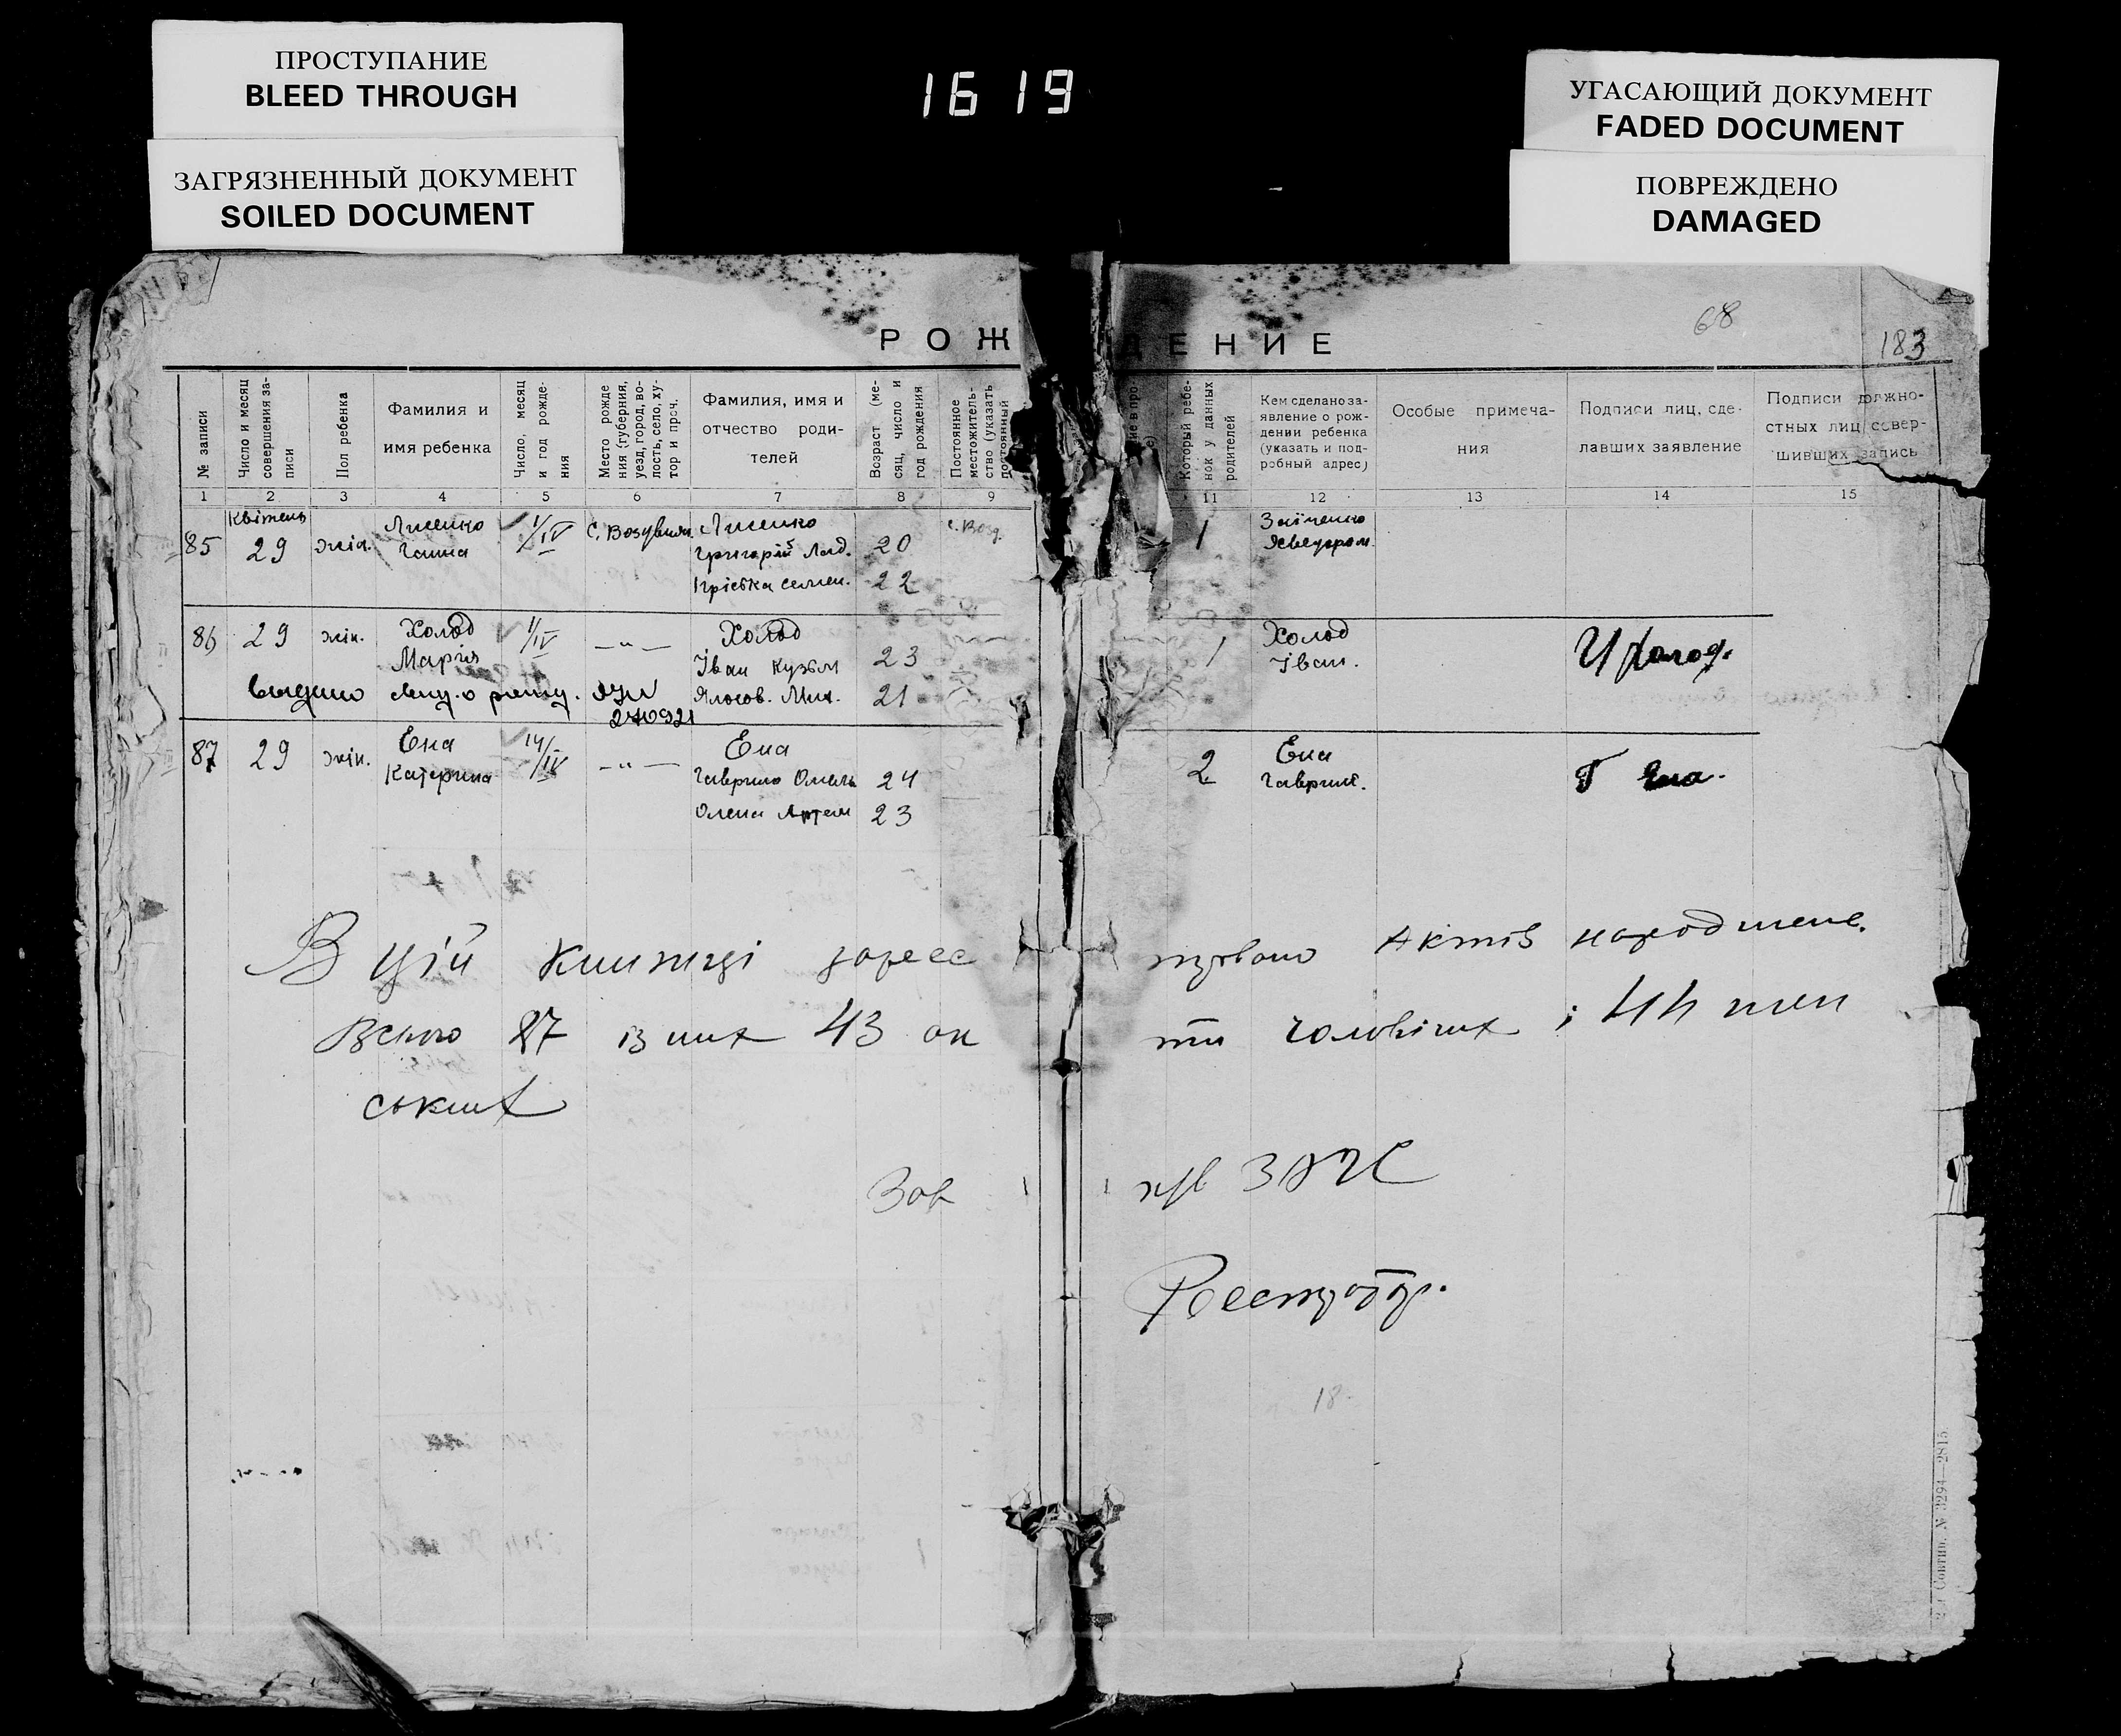 ПРОСТУПАНИЕ
BLEED THROUGH
ЗАГРЯЗНЕННЫЙ ДОКУМЕНТ
SOILED DOCUMENT
16 19
УГАСАЮЩИЙ ДОКУМЕНТ
FADED DOCUMENT
ПОВРЕЖДЕНО
DAMAGED
68
183
РОЖДЕНИЕ
№ записи
Число и месяц совершения за-
писи
Пол ребенка
Фамилия и
имя ребенка
Число, месяц
и год рожде-
ния
Место рожде
ния (губерния,
уезд, город, во-
лость, село, ху-
тор и проч.
Фамилия, имя и
отчество роди-
телей
Возраст (ме-
сяц, число и
год рождения
Постоянное
местожитель-
ство (указать
Который ребе-
нок у данных
родителей
Кем сделано за-
явление о рож-
дении ребенка
(указать и под-
робный адрес)
Особые примеча-
ния
Подписи лиц, сде-
лавших заявление
Подписи должно-
стных лиц совер-
шивших запись
1 2 3 4 5 6 7 8 9 11 12 13 14 15
Квітень
85 29 жін. Лисенко
Ганна
1/IV
Лисенко
Григорій
20
22
1
86 29 жін. Холод
Марія
1/IV
—"—
Холод
Іван Кузьм
23
21
1
Холод
Іван.
И Холод.
87 29 жін. Ена
Катерина
14/IV
—"—
Ена
Гаврило Омель
Олена Артем
24
23
2
Ена
Гаврил.
Г Ена.
В цій книжці зареєстровано Актів народжене.
Всього 87 із них 43 чоловічих і 44 жен
ських
Зав
ЗАГС
Реєстратор.
18